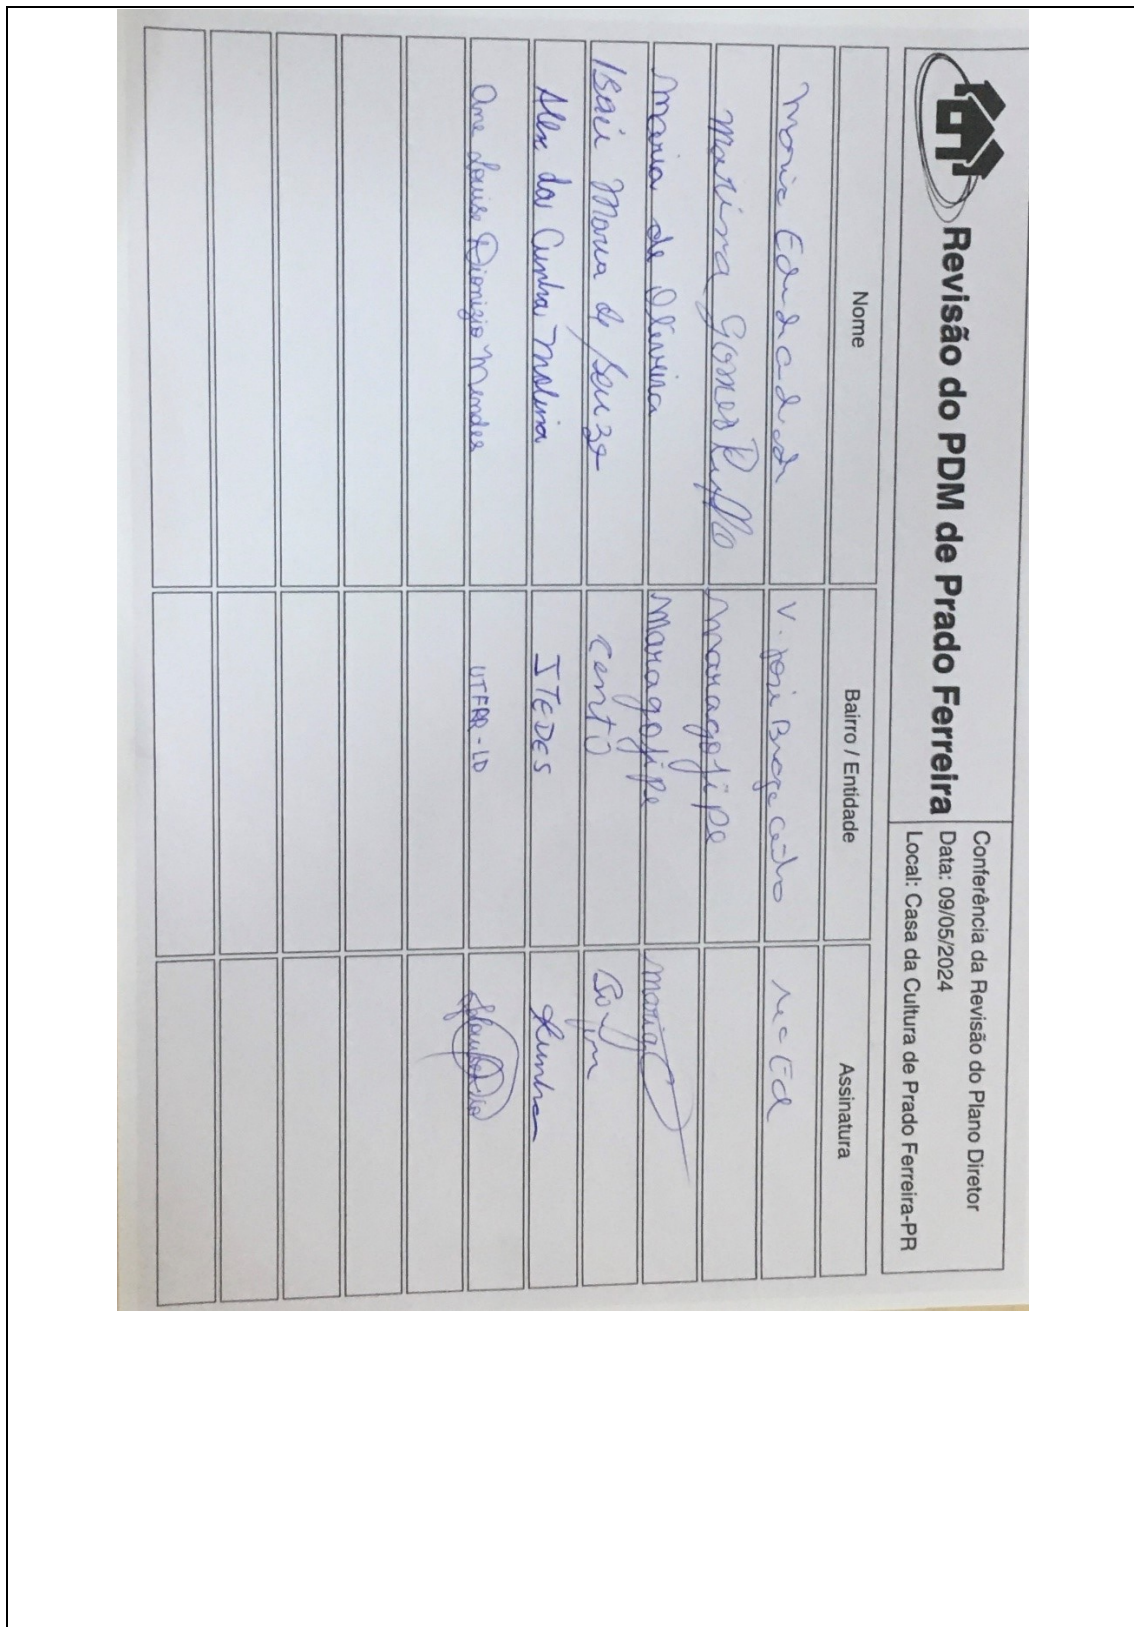 Revisão do PDM de Prado Ferreira
Conferência da Revisão do Plano Diretor
Data: 09/05/2024
Local: Casa da Cultura de Prado Ferreira-PR
Nome Bairro / Entidade Assinatura
Maria V. José Braga
Marina Gomes Maragojipe
Maria de Oliveira Maragojipe Maria
Maria de Souza Cento
Alex da Cunha Molina ITEDES Cunha
Ane Louise Dionizio Mendes UTFPR-LD